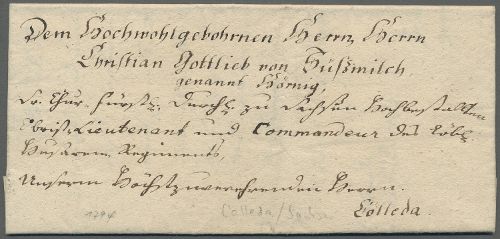 Dem Hochwohlgebohrnen Herrn, Herrn
Christian Gottlieb von Süßmilch
genannt Hörnig,
Sr. Chur-Fürstl. Durchl. zu Sachsen Hochbestallten
Obrist-Lieutenant und Commandeur des Löbl.
Husaren Regiments,
Unserm Höchstzuverehrenden Herrn.
Cölleda.
1794 Cölleda/